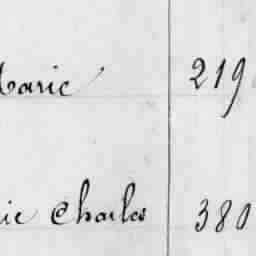 Marie 219
ie Charles 380